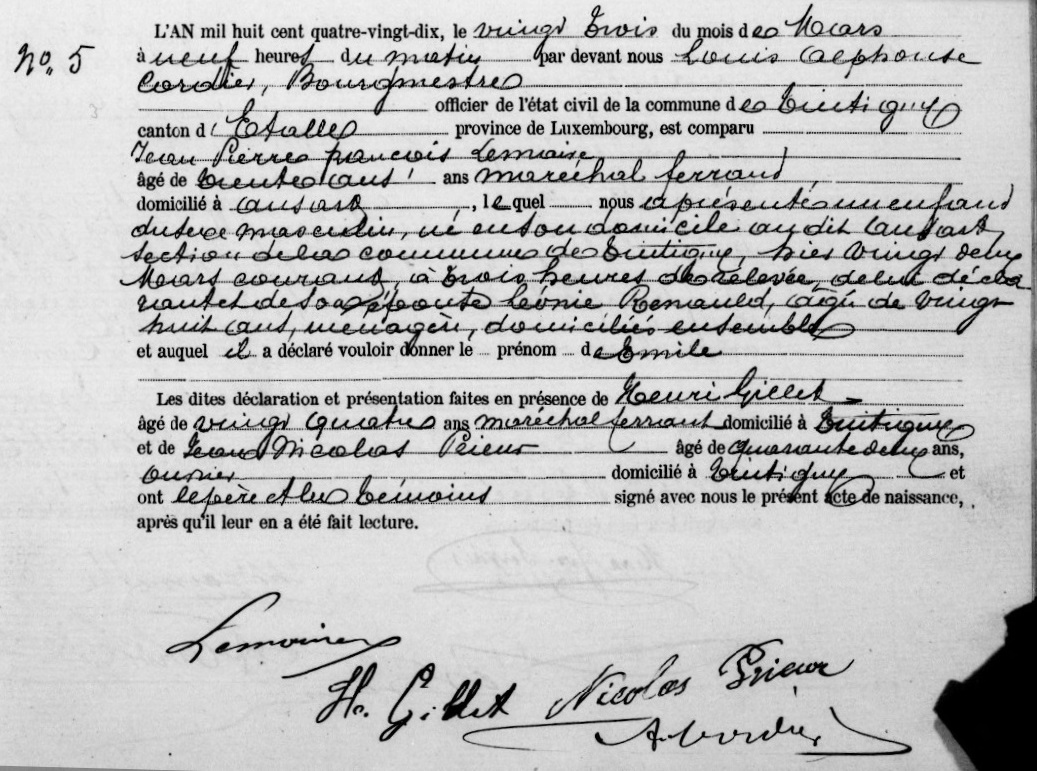 L'AN mil huit cent quatre-vingt-dix, le vingt trois du mois de Mars
No. 5
à neuf heures du matin par devant nous Louis Alphonse
Cordier, Bourgmestre
officier de l'état civil de la commune de Tintigny
canton d'Etalle province de Luxembourg, est comparu
Jean Pierre françois Lemoine
âgé de trente ans ans maréchal ferrand,
domicilié à ansart, lequel nous a présenté un enfant
du sexe masculin, né en son domicile au dit ansart,
section de la commune de Tintigny, hier vingt deux
Mars courant, à trois heures de relevée, de lui décla
rant et de son épouse Léonie Renauld, âgée de vingt
huit ans, ménagère, domiciliés ensemble
et auquel il a déclaré vouloir donner le prénom de Emile
Les dites déclaration et présentation faites en présence de Henri Gillet
âgé de vingt quatre ans maréchal ferrant domicilié à Tintigny
et de Jean Nicolas Prieur âgé de quarante deux ans,
ouvrier domicilié à Tintigny et
ont le père et les témoins signé avec nous le présent acte de naissance,
après qu'il leur en a été fait lecture.
Lemoine
H. Gillet Nicolas Prieur
A. Cordier